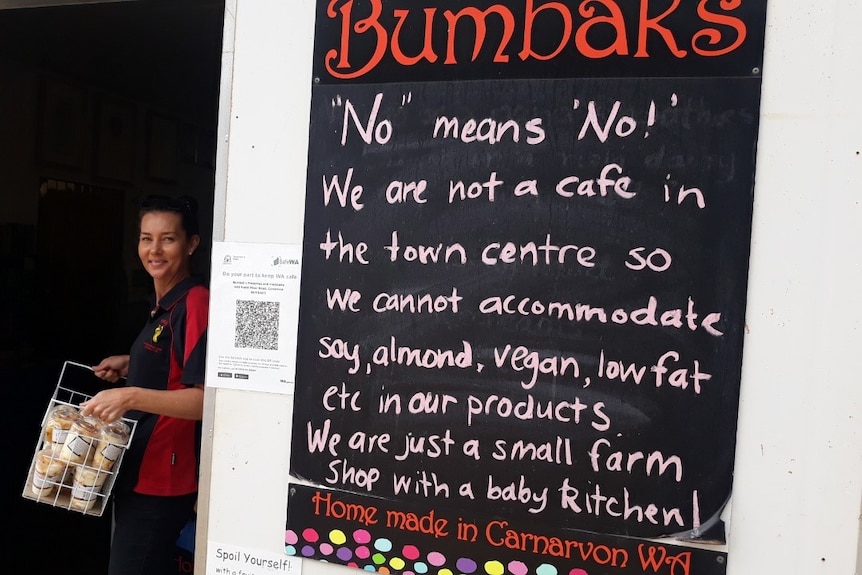 Bumbaks
"No" means 'No!'
We are not a cafe in
the town centre so
we cannot accommodate
soy, almond, vegan, low fat
etc in our products
We are just a small farm
Shop with a baby kitchen!
Home made in Carnarvon WA
SafeWA
Do your part to keep WA safe
Spoil Yourself
with a